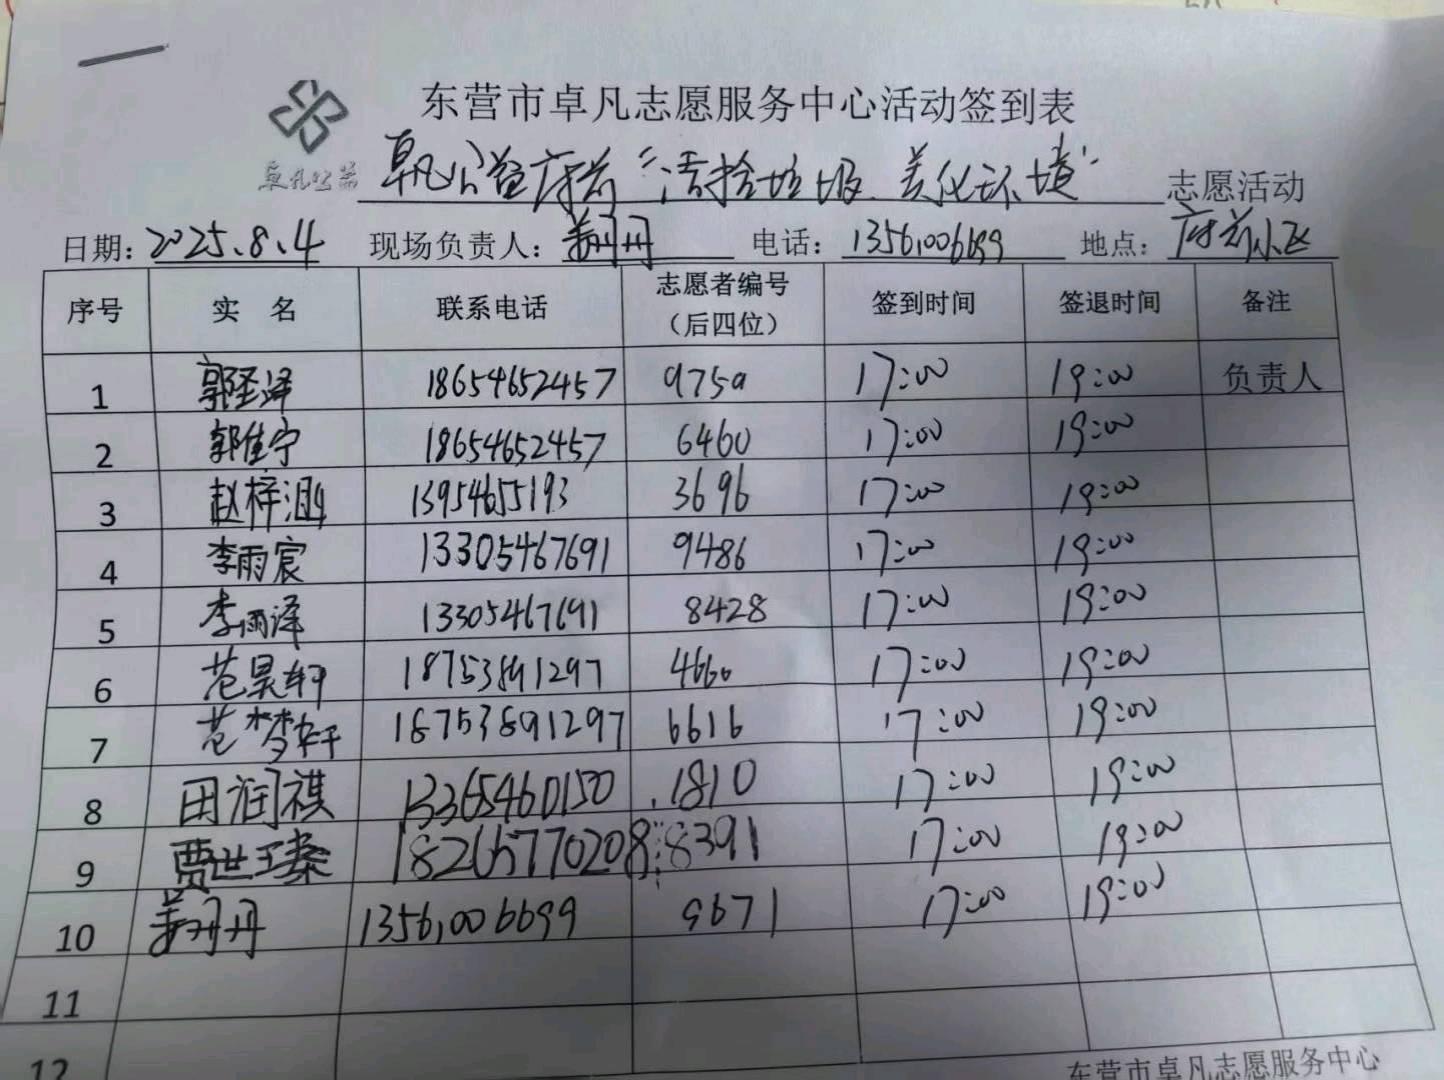 东营市卓凡志愿服务中心活动签到表
卓凡公益
卓凡公益府前“清捡垃圾、美化环境” 志愿活动
日期: 2025.8.4 现场负责人: 姜丹丹 电话: 13561006699 地点: 府前小区
序号 实 名 联系电话 志愿者编号(后四位) 签到时间 签退时间 备注
1 郭圣泽 18654652457 975 17:00 19:00 负责人
2 郭佳宁 18654652457 6460 17:00 19:00
3 赵梓 13954655193 3696 17:00 19:00
4 李雨宸 13305467691 9486 17:00 19:00
5 李雨泽 13305467691 8428 17:00 19:00
6 范昊轩 18753891297 4660 17:00 19:00
7 范梦轩 18753891297 6616 17:00 19:00
8 田润祺 13365460150 1810 17:00 19:00
9 贾世 18265770208 8391 17:00 19:00
10 姜丹丹 13561006699 9671 17:00 19:00
11
12
东营市卓凡志愿服务中心